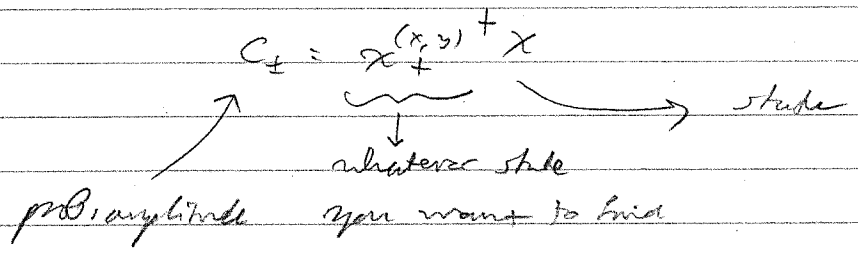 C± = χ±^(x,y)† χ
state
whatever state
prob. amplitude you want to find